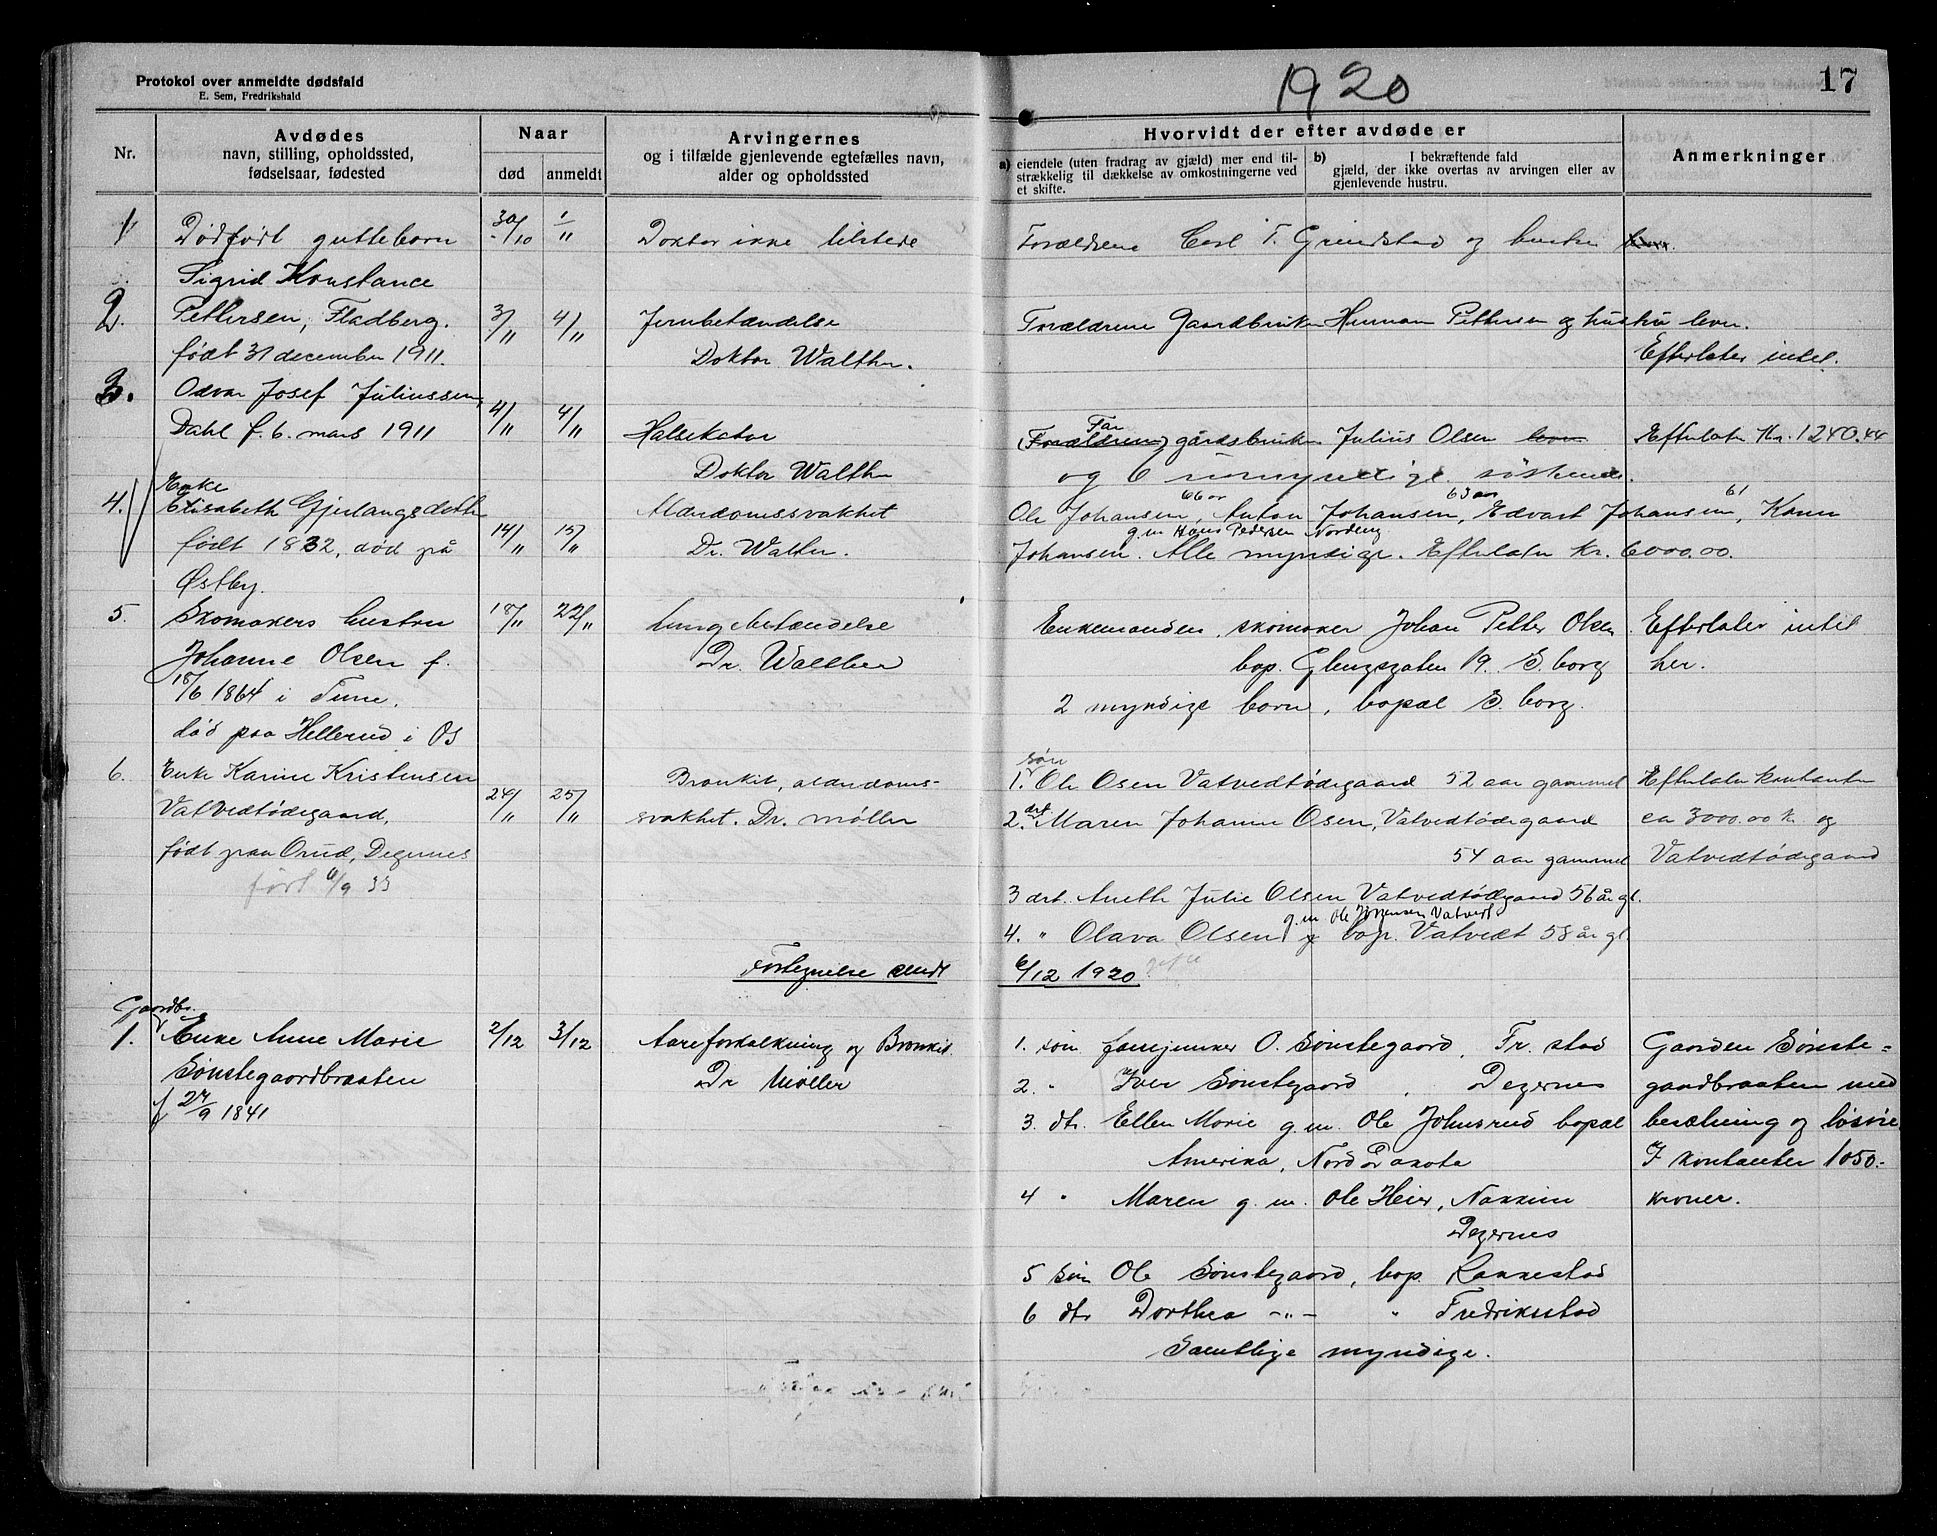 Protokol over anmeldte dødsfald
E. Sem, Fredrikshald
1920
17
Nr.
Avdødes
navn, stilling, opholdssted,
fødselsaar, fødested
Naar
død
anmeldt
Arvingernes
og i tilfælde gjenlevende egtefælles navn,
alder og opholdssted
Hvorvidt der efter avdøde er
a) eiendele (uten fradrag av gjæld) mer end til-
strækkelig til dækkelse av omkostningerne ved
et skifte.
b) I bekræftende fald
gjæld, der ikke overtas av arvingen eller av
gjenlevende hustru.
Anmerkninger
1 Dødført guttebarn 30/10 1/11 Doktor ikke tilstede Forældrene Carl T. Grimstad og hustru
2. Sigrid Konstance
Pettersen, Fladberg. 3/11 4/11 Jernbetændelse Forældrene Gaardbruker Herman Pettersen og hustru lever.
født 31 december 1911. Doktor Walther. Efterlater intet.
3. Odvar Josef Juliussen,
Dahl f. 6. mars 1911 4/11 4/11 Halsekatar Forældrene Far gårdsbruker Julius Olsen lever Efterlater Kr. 1240.44
Doktor Walther og 6 umyndige søskende.
4. Enke
Elisabeth Gjerlangsdatter Alderdomssvakhet Ole Johansen, 66 aar Anton Johansen, 63 aar Edvart Johansen, 61 Karen
født 1832, død på 14/11 15/11 Dr. Walther. Johansen. g.m. Hans Pedersen Nordeng Alle myndige. Efterlater Kr. 6000.00.
Østby.
5. Skomakers hustru 18/11 22/11 Lungebetændelse Enkemanden, skomaker Johan Petter Olsen Efterlater intet
Johanne Olsen f. Dr. Walther bop. Glengsgaten 19. S.borg her.
18/6 1864 i Tune. 2 myndige barn, bopæl S.borg.
død paa Hellerud i Os
6. Enke Karine Kristensen 24/11 25/11 Bronkit, alderdoms- 1. søn Ole Osen Vatvedtødegaard 52 aar gammel Efterlater kontanter
Vatvedtødegaard, svakhet. Dr. Møller 2. dat. Maren Johanne Osen, Vatvedtødegaard ca 3000.00 kr og
født paa Orud, Degernes 54 aar gammel Vatvedtødegaard
ført 6/9 33
3 dat. Aneth Julie Olsen Vatvedtødegaard 56 år gl.
g.m Ole Jørgensen Vatvedt
4. " Olava Olsen bop. Vatvedt 58 år gl.
Fortegnelse sendt 6/12 1920
Gaardbr.
1. Enke Anne Marie 2/12 3/12 Aareforkalkning og Bronkit. 1. søn fanejunker O. Sønstegaard, Fr.stad Gaarden Sønste-
Sønstegaardbraaten Dr Møller 2. " Iver Sønstegaard, Degernes gaardbraaten med
f 27/9 1841 3. dtr. Ellen Marie g.m. Ole Johnsrud bopæl besætning og løsøre.
Amerika, Nord Dakota I kontanter 1050.-
4 " Maren g.m. Ole Heier, Nakkim kroner.
Degernes
5 søn Ole Sønstegaard, bop. Rakkestad
6 dtr Dorthea -"- " Fredrikstad
Samtlige myndige.